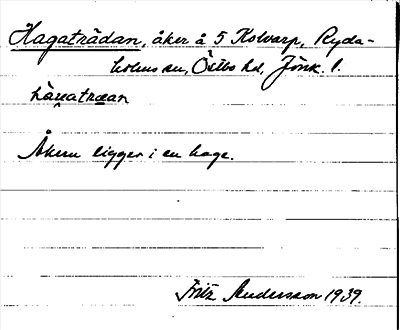 Hagaträdan, åker å 5 Kolvarp, Ryda-
holms sn, Östbo hd, Jönk. l.
hàgatræan
Åkern ligger i en hage.
Fritz Andersson 1939.